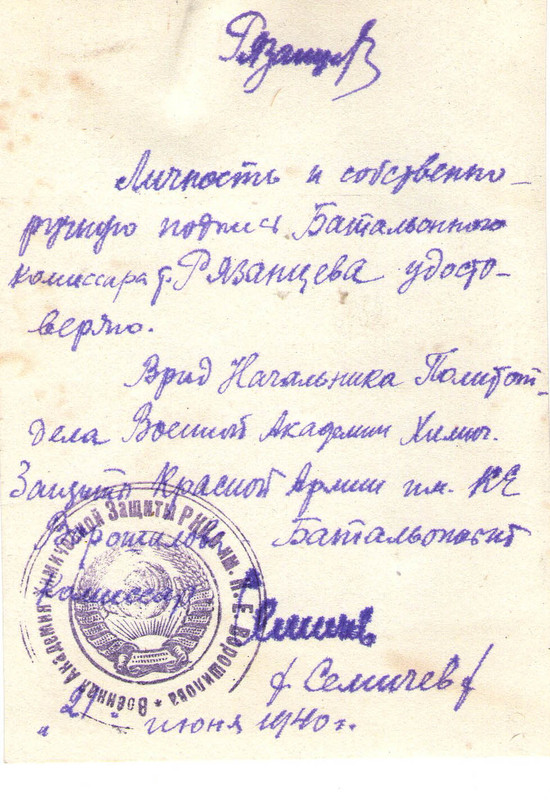 Рязанцев
Личность и собственно-
ручную подпись Батальонного
комиссара т. Рязанцева удосто-
веряю.
Врид Начальника Политот-
дела Военной Академии Химич.
Защиты Красной Армии им. КЕ
Ворошилова Батальонный
комиссар
/Семичев/
"21" июня 1940 г.
Военная Академия Химической Защиты РККА им. К. Е. Ворошилова *